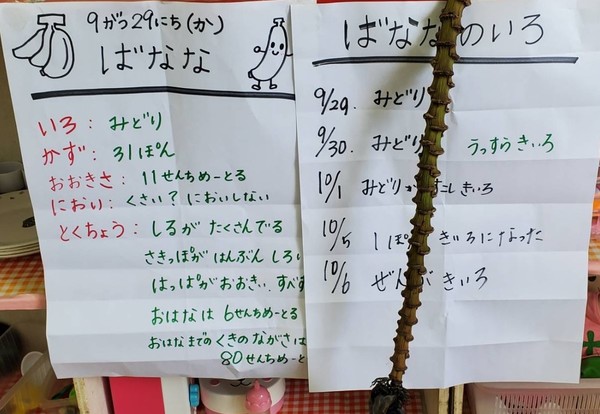 9がつ29にち(か)
ばなな
いろ: みどり
かず: 31ぽん
おおきさ: 11せんちめーとる
におい: くさい?においしない
とくちょう: しるが たくさんでる
さきっぽが はんぶん しろい
はっぱがおおきい. すべす
おはなは 6せんちめーとる
おはなまでのくきのながさは
80せんちめーと
ばななのいろ
9/29. みどり
9/30. みどり うっすらきいろ
10/1 みどりが すこしきいろ
10/5 1ぽん きいろになった
10/6 ぜんぶ きいろ